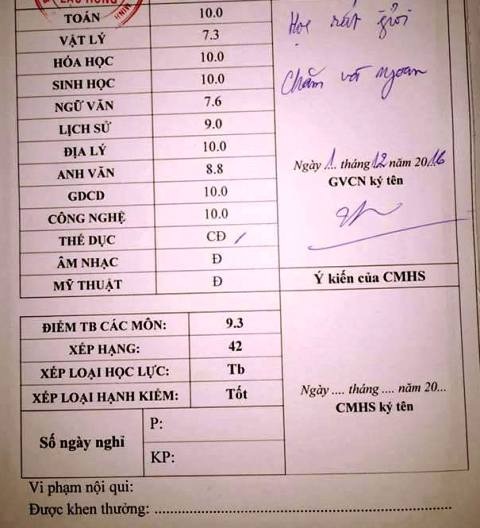 LẠC HỒNG
TOÁN 10.0
VẬT LÝ 7.3
HÓA HỌC 10.0
SINH HỌC 10.0
NGỮ VĂN 7.6
LỊCH SỬ 9.0
ĐỊA LÝ 10.0
ANH VĂN 8.8
GDCD 10.0
CÔNG NGHỆ 10.0
THỂ DỤC CĐ
ÂM NHẠC Đ
MỸ THUẬT Đ
Học rất giỏi
Chăm và ngoan
Ngày 1 tháng 12 năm 2016
GVCN ký tên
Ý kiến của CMHS
ĐIỂM TB CÁC MÔN: 9.3
XẾP HẠNG: 42
XẾP LOẠI HỌC LỰC: Tb
XẾP LOẠI HẠNH KIỂM: Tốt
Số ngày nghỉ
P:
KP:
Ngày .... tháng .... năm 20...
CMHS ký tên
Vi phạm nội qui:
Được khen thưởng: ........................................................